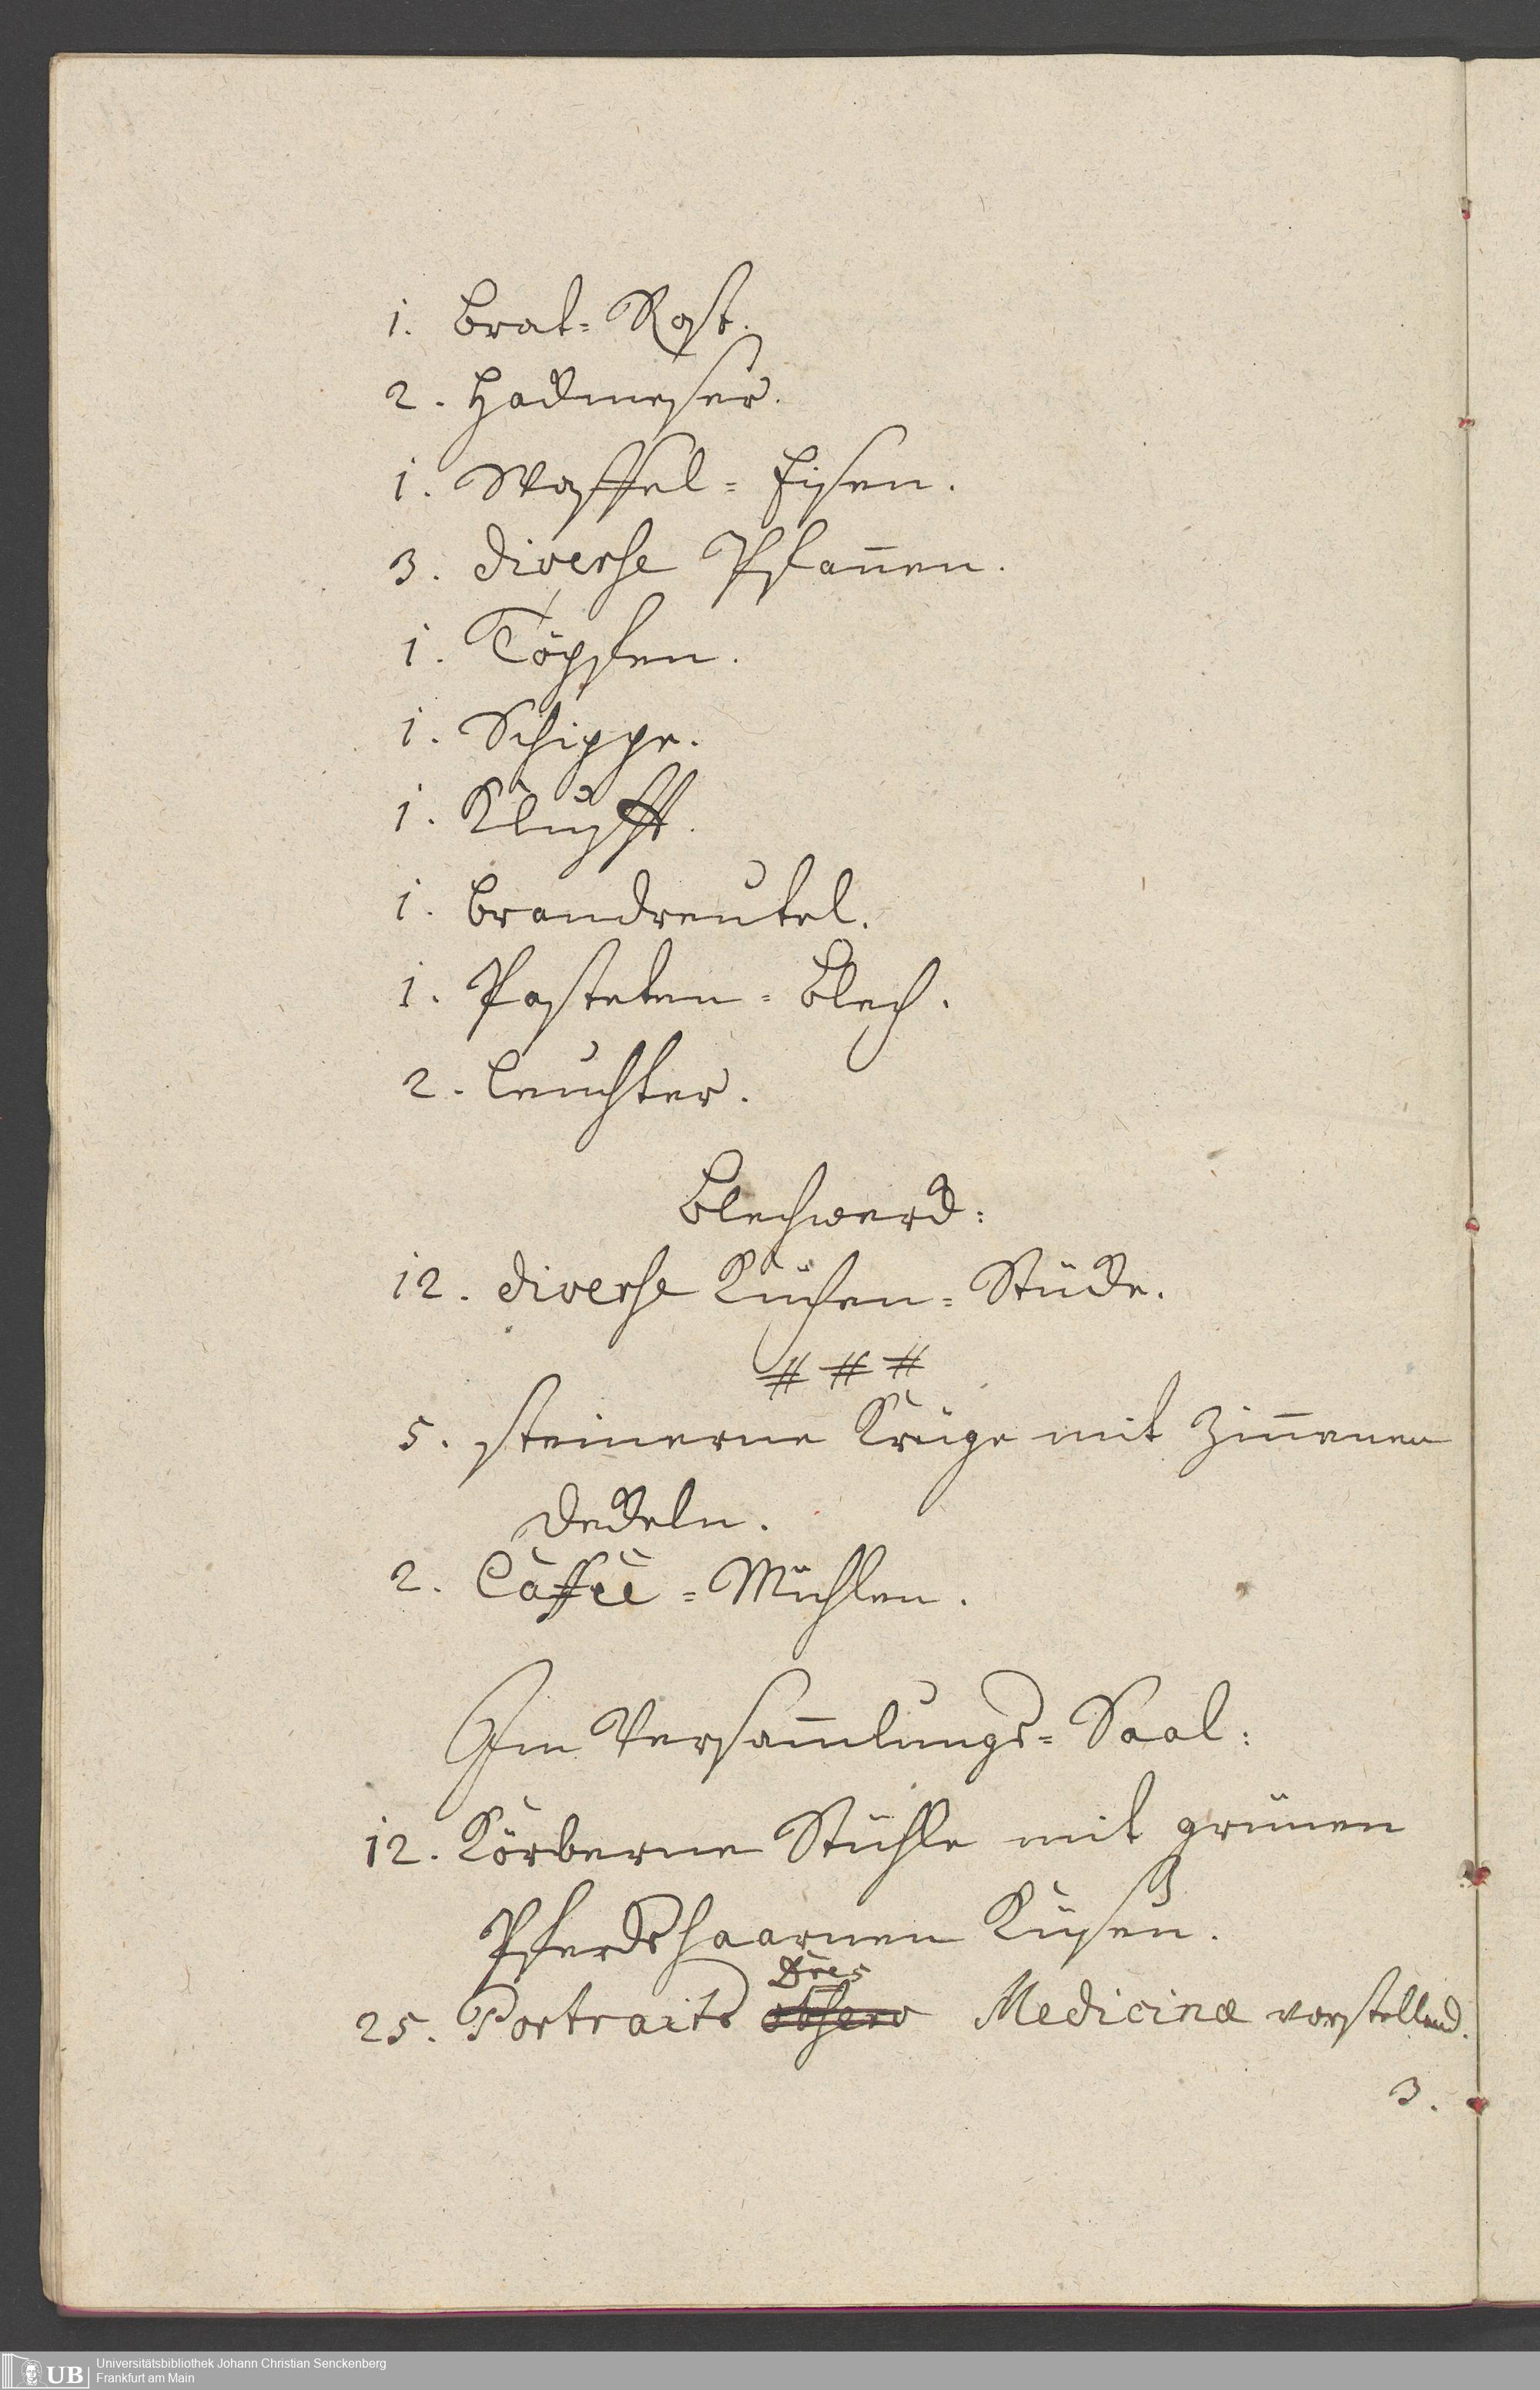 1. Brat=Rost.
2. Hackmeßer.
1. Waffel=Eisen.
3. diverse Pfan̄en.
1. Töpfen.
1. Schippe.
1. Klufft.
1. Brandreutel.
1. Pasteten=Blech.
2. Leuchter.
Blechwerck:
12. diverse Küchen=Stücke.
# # #
5. steinerne Krüge mit Zin̄enen
Deckeln.
2. Caffée=Mühlen.
Im Versam̄lungs=Saal:
12. Körberne Stühle mit grünen
Pferdshaarnen Küßen.
Dres
25. Portraits Medicinæ vorstellend.
3.
Universitätsbibliothek Johann Christian Senckenberg
UB
Frankfurt am Main